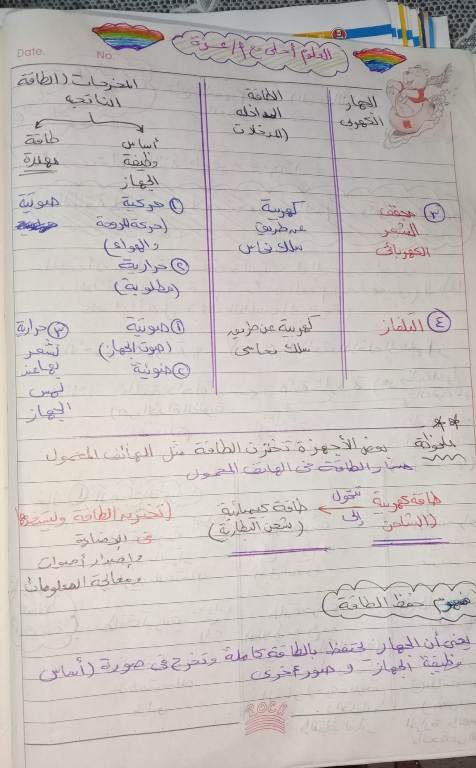 Date.
No.
العلوم أحلى مع أ/
الجهاز
الكهربى
الطاقة
الداخله
(المدخلات)
المخرجات (الطاقة
الناتجه
أساس
وظيفة
الجهاز
طاقة
مهدرة
③ مجفف
الشعر
الكهربائى
كهربية
عن طريق
سلك نحاس
① حركية
(حركة المروحة
والهواء)
② حرارية
(مطلوبة)
صوتية
④ التلفاز
كهربية عن طريق
سلك نحاسى
① صوتية
(صوت الجهاز)
② ضوئية
③ حرارية
نشعر
بها عند
لمس
الجهاز
ملحوظة بعض الأجهزة تختزن الطاقة مثل الهاتف المحمول
مسار الطاقة فى الهاتف المحمول
طاقة كهربية
(الشاحن)
تتحول
إلى
طاقة كيميائية
(شحن البطارية)
(تختزن الطاقة
فى الإضاءة
وإصدار أصوات
ومعالجة المعلومات
مفهوم حفظ الطاقة
يعنى أن الجهاز يحتفظ بالطاقة كاملة وتخرج فى صورة (أساس
وظيفة الجهاز و صور أخرى
ROCK